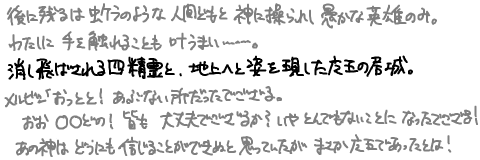 後に残るは虫ケラのような人間どもと神に操られし愚かな英雄のみ。
わたしに手を触れることも叶うまい――。
消し飛ばされる四精霊と、地上へと姿を現した魔王の居城。
メルビン「おっとと！あぶない所だったでござる。
おお○○どの！皆も大丈夫でござるか？いやとんでもないことになったでござる！
あの神はどうにも信じることができぬと思っていたがまさか魔王であったとは！